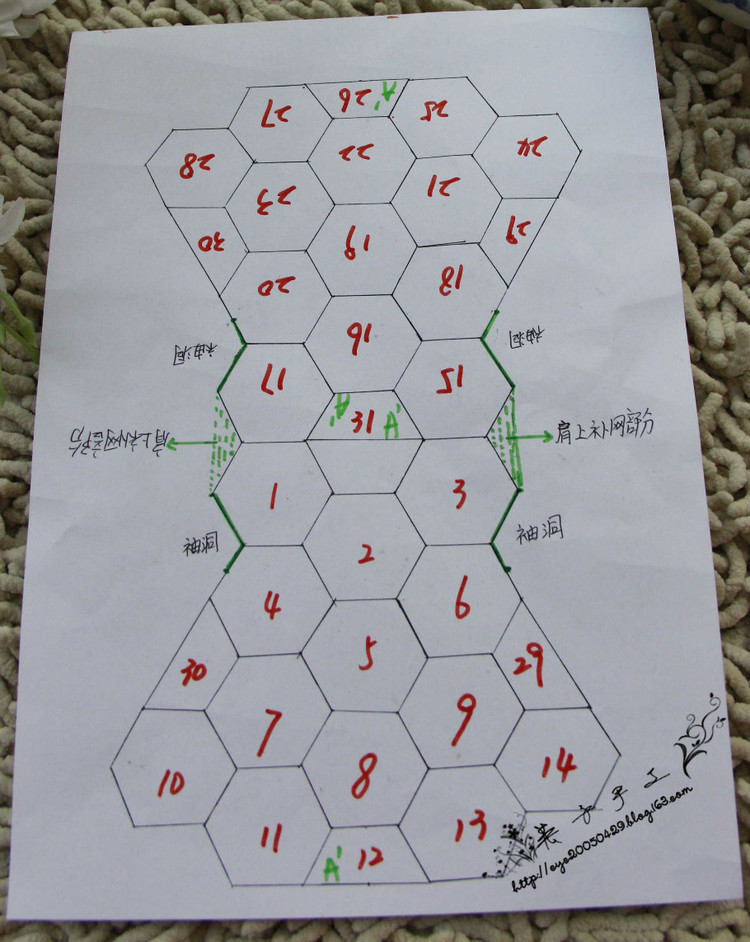 27 26 A' 25
28 22 24
23 21
30 19 29
20 18
袖洞 16 袖洞
17 15
A' 31 A'
肩上补网部分 肩上补网部分
1 3
袖洞 2 袖洞
4 6
5
30 29
7 9
10 8 14
11 13
A' 12
手工
http://eyo20050429.blog.163.com